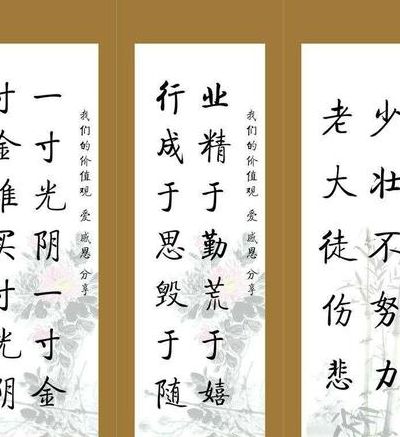 我们的价值观 爱 感恩 分享
一寸光阴一寸金
寸金难买寸光阴
我们的价值观 爱 感恩 分享
业精于勤荒于嬉
行成于思毁于随
少壮不努力
老大徒伤悲